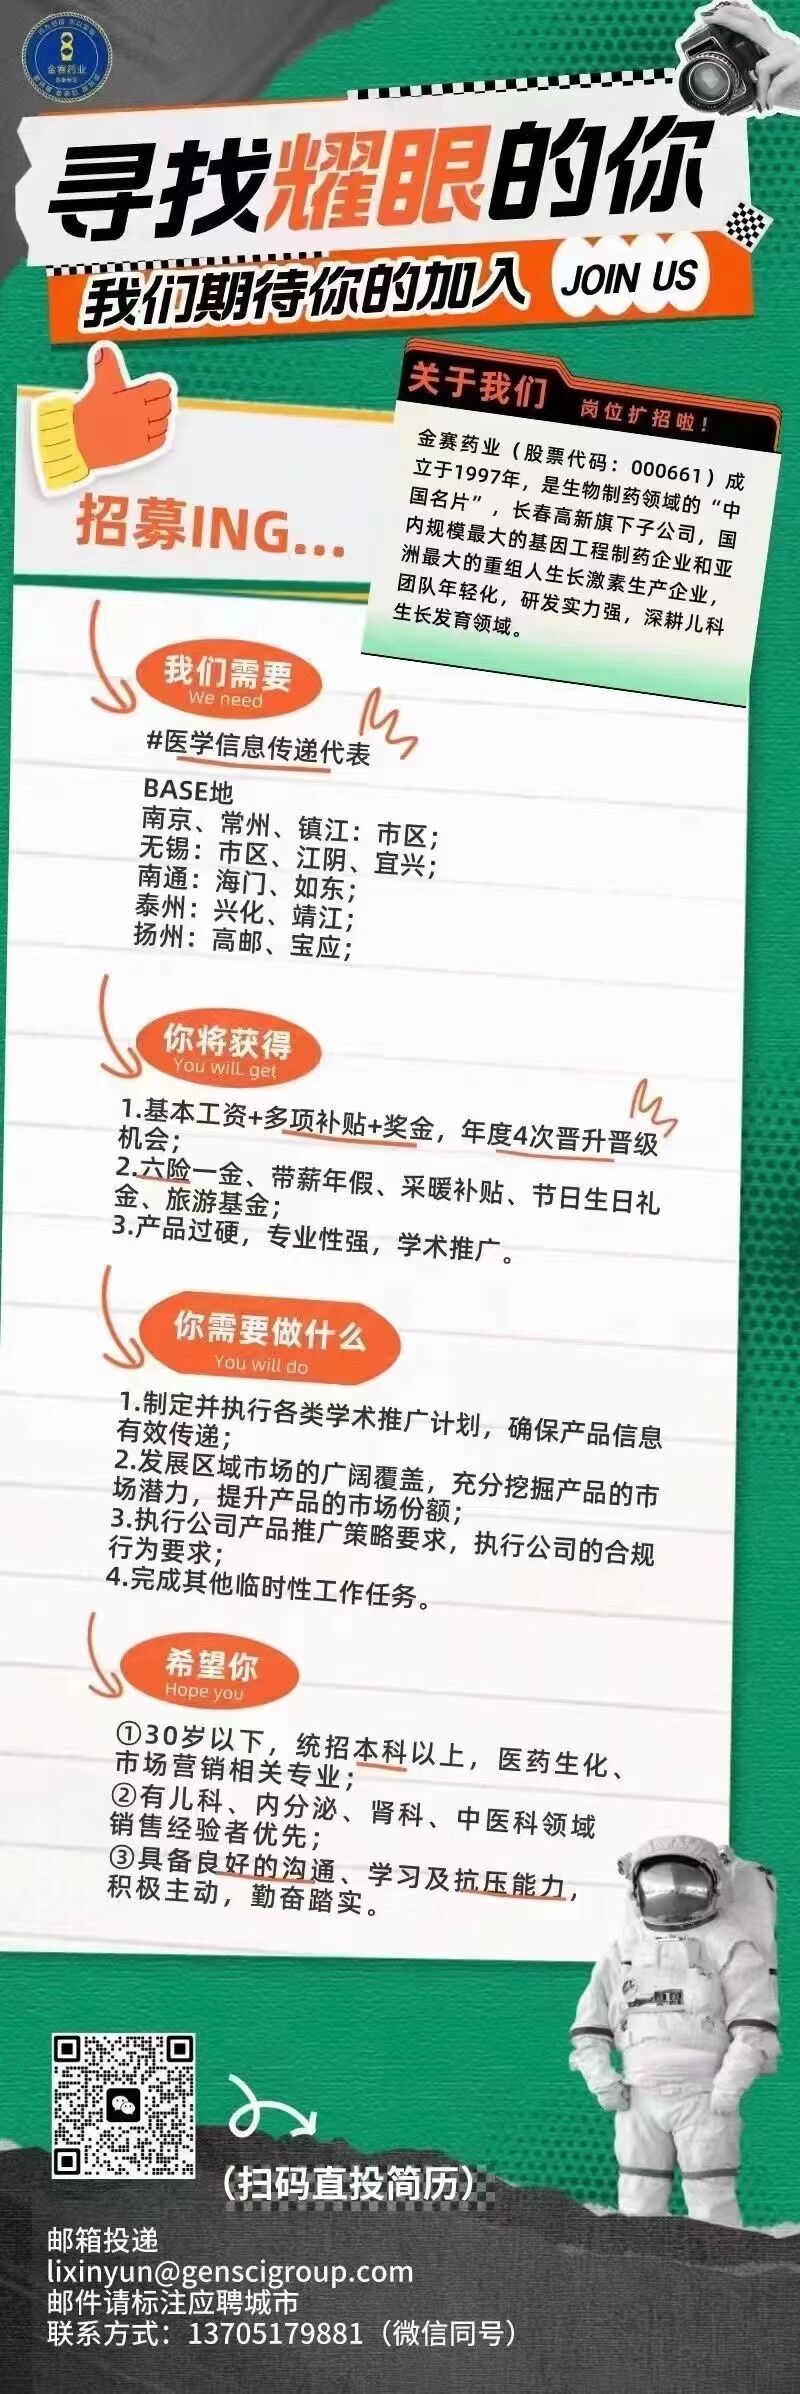 金赛药业
寻找耀眼的你
我们期待你的加入 JOIN US
关于我们 岗位扩招啦！
金赛药业（股票代码：000661）成
立于1997年，是生物制药领域的“中
国名片”，长春高新旗下子公司，国
内规模最大的基因工程制药企业和亚
洲最大的重组人生长激素生产企业，
团队年轻化，研发实力强，深耕儿科
生长发育领域。
招募ING...
我们需要
We need
#医学信息传递代表
BASE地
南京、常州、镇江：市区；
无锡：市区、江阴、宜兴；
南通：海门、如东；
泰州：兴化、靖江；
扬州：高邮、宝应；
你将获得
You will get
1.基本工资+多项补贴+奖金，年度4次晋升晋级
机会；
2.六险一金、带薪年假、采暖补贴、节日生日礼
金、旅游基金；
3.产品过硬，专业性强，学术推广。
你需要做什么
You will do
1.制定并执行各类学术推广计划，确保产品信息
有效传递；
2.发展区域市场的广阔覆盖，充分挖掘产品的市
场潜力，提升产品的市场份额；
3.执行公司产品推广策略要求，执行公司的合规
行为要求；
4.完成其他临时性工作任务。
希望你
Hope you
①30岁以下，统招本科以上，医药生化、
市场营销相关专业；
②有儿科、内分泌、肾科、中医科领域
销售经验者优先；
③具备良好的沟通、学习及抗压能力，
积极主动，勤奋踏实。
（扫码直投简历）
邮箱投递
lixinyun@genscigroup.com
邮件请标注应聘城市
联系方式：13705179881（微信同号）